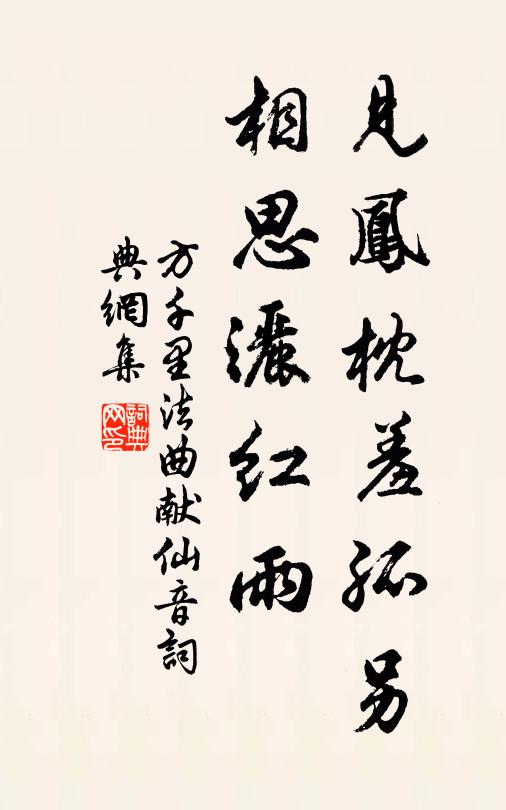 見鳳枕羞孤另
相思灑紅雨
方千里法曲献仙音詞
典網集
詞典网印